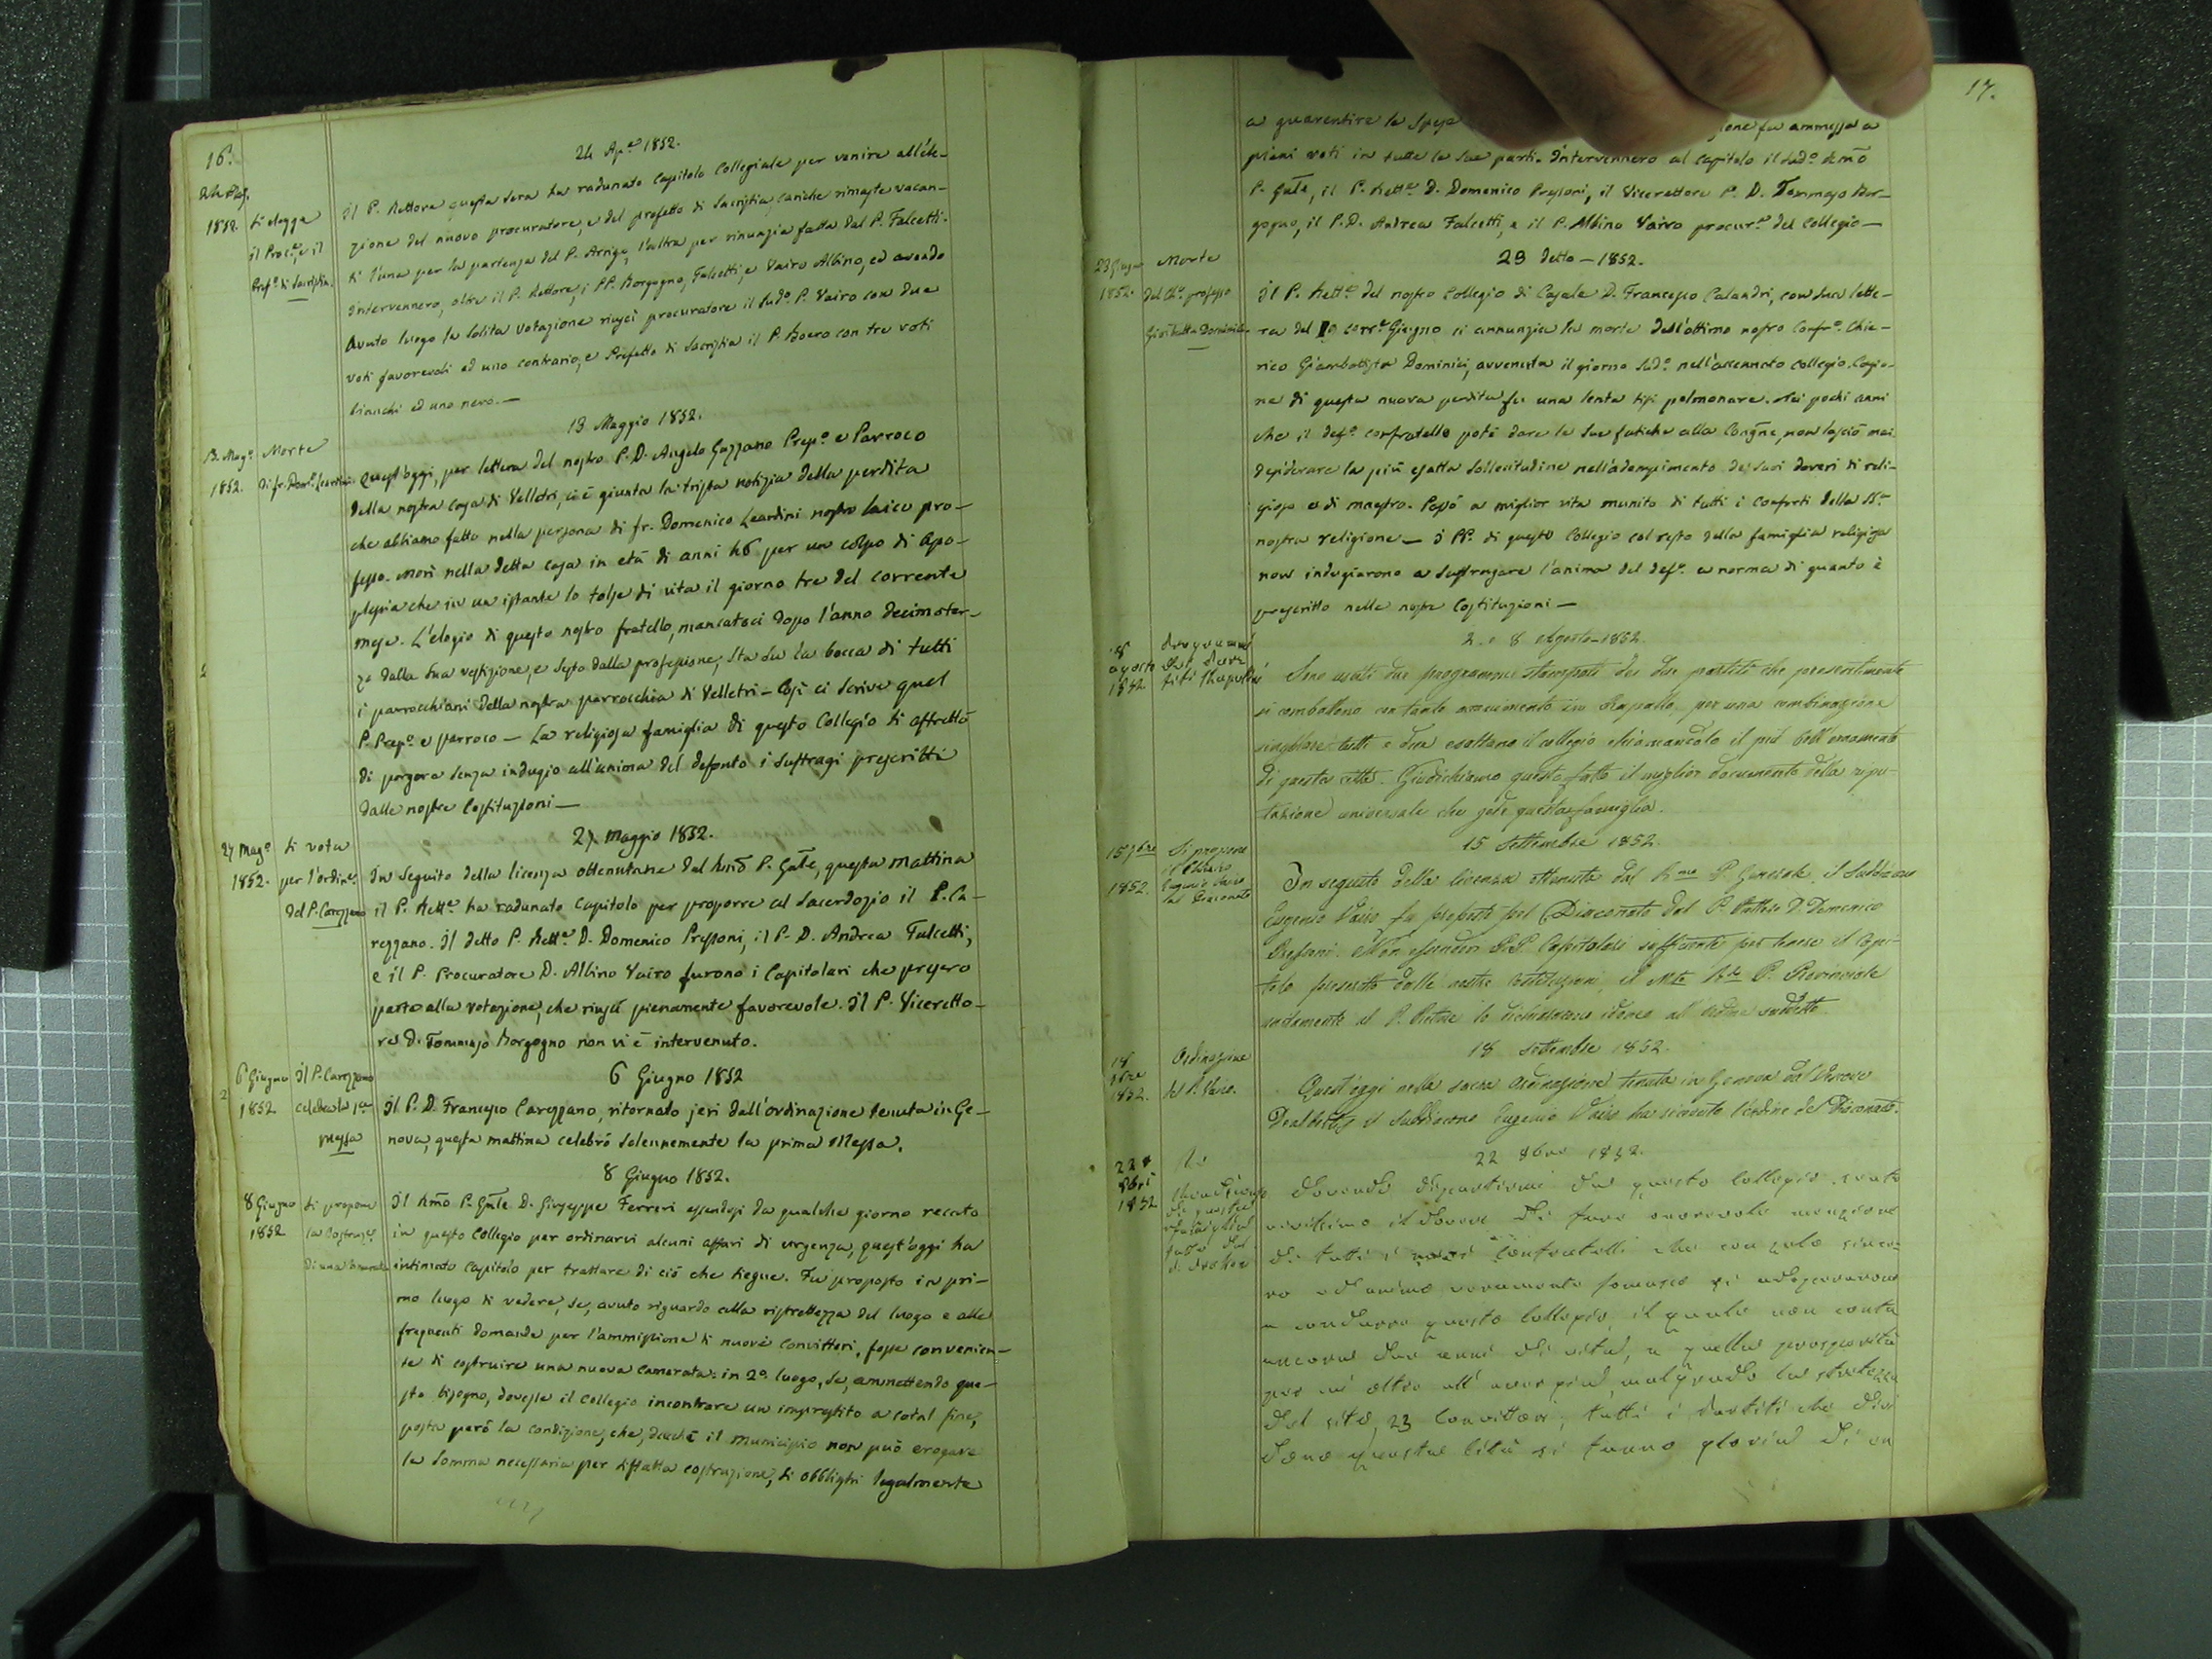 16.
24 Ap.e 1852.
1852. Si elegge
il Proc.e, e il
Pref.o di Sacristia.
Il P. Rettore questa sera ha radunato Capitolo Collegiale per venire all'ele-
zione del nuovo procuratore, e del prefetto di Sacristia, cariche rimaste vacan-
ti l'una per la partenza del P. Arrigo, l'altra per rinunzia fatta dal P. Falcetti.
Intervennero, oltre il P. Rettore, i PP. Borgogno, Falcetti, e Vairo Albino, ed avendo
avuto luogo la solita votazione riuscì procuratore il Sud.o P. Vairo con due
voti favorevoli ed uno contrario, e Prefetto di Sacristia il P. Boero con tre voti
bianchi ed uno nero. —
13 Maggio 1852.
13. Mag.o Morte
1852. di fr. Dom.o Leardini
Quest'oggi, per lettera del nostro P. D. Angelo Gazzano Prep.o e Parroco
della nostra casa di Velletri, ci è giunta la trista notizia della perdita
che abbiamo fatto nella persona di fr. Domenico Leardini nostro laico pro-
fesso. Morì nella detta casa in età di anni 46 per un colpo di apo-
plesia che in un istante lo tolse di vita il giorno tre del corrente
mese. L'elogio di questo nostro fratello, mancatoci dopo l'anno decimoter-
zo dalla sua vestizione, e sesto dalla professione, sta su la bocca di tutti
i parrocchiani della nostra parrocchia di Velletri — Così ci scrive quel
P. Prep.o e parroco — La religiosa famiglia di questo Collegio si affrettò
di porgere senza indugio all'anima del defonto i suffragi prescritti
dalle nostre Costituzioni —
27. Maggio 1852.
27 Mag.o Si vota
1852. per l'ordin.e
del P. Carezzano
In seguito della licenza ottenutane dal Rmo P. Gñle, questa mattina
il P. Rett.e ha radunato Capitolo per proporre al Sacerdozio il P. Ca-
rezzano. Il detto P. Rett.e D. Domenico Pressoni, il P. D. Andrea Falcetti,
e il P. Procuratore D. Albino Vairo furono i Capitolari che presero
parte alla votazione, che riuscì pienamente favorevole. Il P. Viceretto-
re D. Tommaso Borgogno non vi è intervenuto.
6 Giugno 1852
6 Giugno Il P. Carezzano
1852 celebra la 1.a
messa
Il P. D. Francesco Carezzano, ritornato jeri dall'ordinazione tenuta in Ge-
nova, questa mattina celebrò solennemente la prima Messa.
8 Giugno 1852.
8 Giugno Si propone
1852 la Costruz.e
di una Camerata
Il Rmo P. Gñle D. Giuseppe Ferreri essendosi da qualche giorno recato
in questo Collegio per ordinarvi alcuni affari di urgenza, quest'oggi ha
intimato Capitolo per trattare di ciò che siegue. Fu proposto in pri-
mo luogo di vedere, se, avuto riguardo alla ristrettezza del luogo e alle
frequenti domande per l'ammissione di nuovi convittori, fosse convenien-
te di costruire una nuova camerata: in 2.o luogo, se, ammettendo que-
sto bisogno, dovesse il Collegio incontrare un imprestito a cotal fine,
posta però la condizione, che, dacchè il municipio non può erogare
la somma necessaria per siffatta costruzione, si obblighi legalmente
17.
a guarentire la spesa
zione fu ammessa a
pieni voti in tutte le sue parti. Intervennero al Capitolo il Sud.o Rmo
P. Gñle, il P. Rett.e D. Domenico Pressoni, il Vicerettore P. D. Tommaso Bor-
gogno, il P. D. Andrea Falcetti, e il P. Albino Vairo procur.e del Collegio —
23 Detto — 1852.
23 Giugno Morte
1852. del Ch.o professo
Giobatta Dominici
Il P. Rett.e del nostro Collegio di Casale D. Francesco Calandri, con sua lette-
ra del corr.e Giugno ci annunzia la morte dell'ottimo nostro Confr.o Chie-
rico Giambattista Dominici, avvenuta il giorno Sud.o nell'accennato Collegio. Cagio-
ne di questa nuova perdita fu una lenta tisi polmonare. Nei pochi anni
che il def.o confratello potè dare le sue fatiche alla Congñe, non lasciò mai
desiderare la più esatta sollecitudine nell'adempimento de' suoi doveri di reli-
gioso e di maestro. Passò a miglior vita munito di tutti i conforti della S.a
nostra religione — I PP. di questo Collegio col resto della famiglia religiosa
non indugiarono a suffragare l'anima del def.o a norma di quanto è
prescritto nelle nostre Costituzioni —
2. e 8 Agosto — 1852.
8
agosto
1852
Sono usciti due programmi stampati dei due partiti che presentemente
si combattono con tanto accanimento in Rapallo, per una combinazione
singolare tutti e due esaltano il collegio chiamandolo il più bell'ornamento
di questa città. Giudichiamo questo fatto il miglior documento della ripu-
tazione universale che gode questa famiglia.
15 Settembre 1852.
15 7bre Si propone
1852. il Chierico
Eugenio Vairo
al Diaconato
In seguito della licenza ottenuta dal Rmo P. Generale, il Suddiacono
Eugenio Vairo fu proposto pel Diaconato dal P. Rettore D. Domenico
Pressoni. Non essendovi P.P. Capitolari sufficienti per tenere il Capi-
tolo prescritto dalle nostre costituzioni, il Mto Rdo P. Provinciale
unitamente al P. Rettore lo dichiararono idoneo all'Ordine suddetto.
18 Settembre 1852.
18 Ordinazione
7bre
1852. del P. Vairo.
Quest'oggi nella sacra Ordinazione tenuta in Genova dal Vescovo
Dealbertis il Suddiacono Eugenio Vairo ha ricevuto l'ordine del Diaconato.
22 8bre 1852.
22
8bre
1852
Dovendo dipartirmi da questo Collegio, sento
vivissimo il dovere di fare onorevole menzione
di tutti i Confratelli che con zelo since-
ro ed animo veramente somasco si adoperarono
a condurre questo Collegio, il quale non conta
ancora due anni di vita, a quella prosperità
malgrado la strettezza
del sito, 23 Convittori; tutti i partiti che divi-
dono questa Città si fanno gloria di